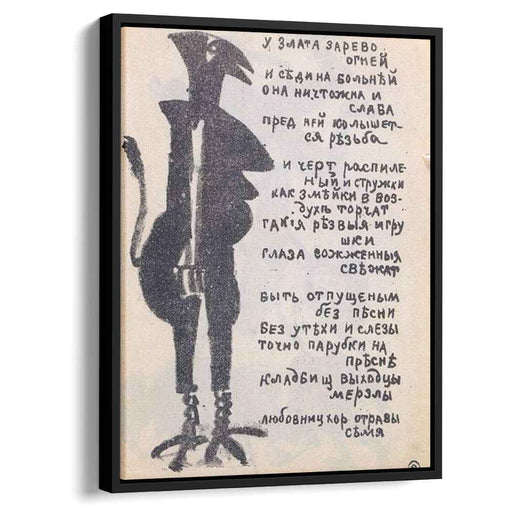 у злата зарево
огней
и сѣдина больнѣй
она ничтожна и
слаба
пред ней колышет-
ся рѣзьба
и черт распиле-
ный и стружки
как змѣйки в воз-
духѣ торчат
такія рѣзвыя игру
шки
глаза сожженныя
свѣжат
быть отпущеным
без пѣсни
без утѣхи и слезы
точно парубки на
прѣснѣ
кладбищ выходцы
мерзлы
любовниц хор отравы
сѣмя